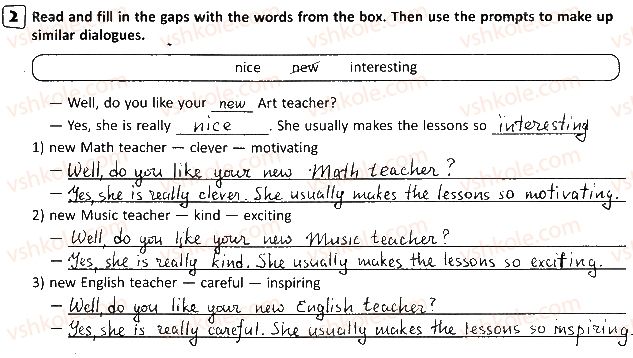 2 Read and fill in the gaps with the words from the box. Then use the prompts to make up
similar dialogues.
nice new interesting
— Well, do you like your new Art teacher?
— Yes, she is really nice. She usually makes the lessons so interesting
1) new Math teacher — clever — motivating
— Well, do you like your new Math teacher?
— Yes, she is really clever. She usually makes the lessons so motivating.
2) new Music teacher — kind — exciting
— Well, do you like your new Music teacher?
— Yes, she is really kind. She usually makes the lessons so exciting.
3) new English teacher — careful — inspiring
— Well, do you like your new English teacher?
— Yes, she is really careful. She usually makes the lessons so inspiring.